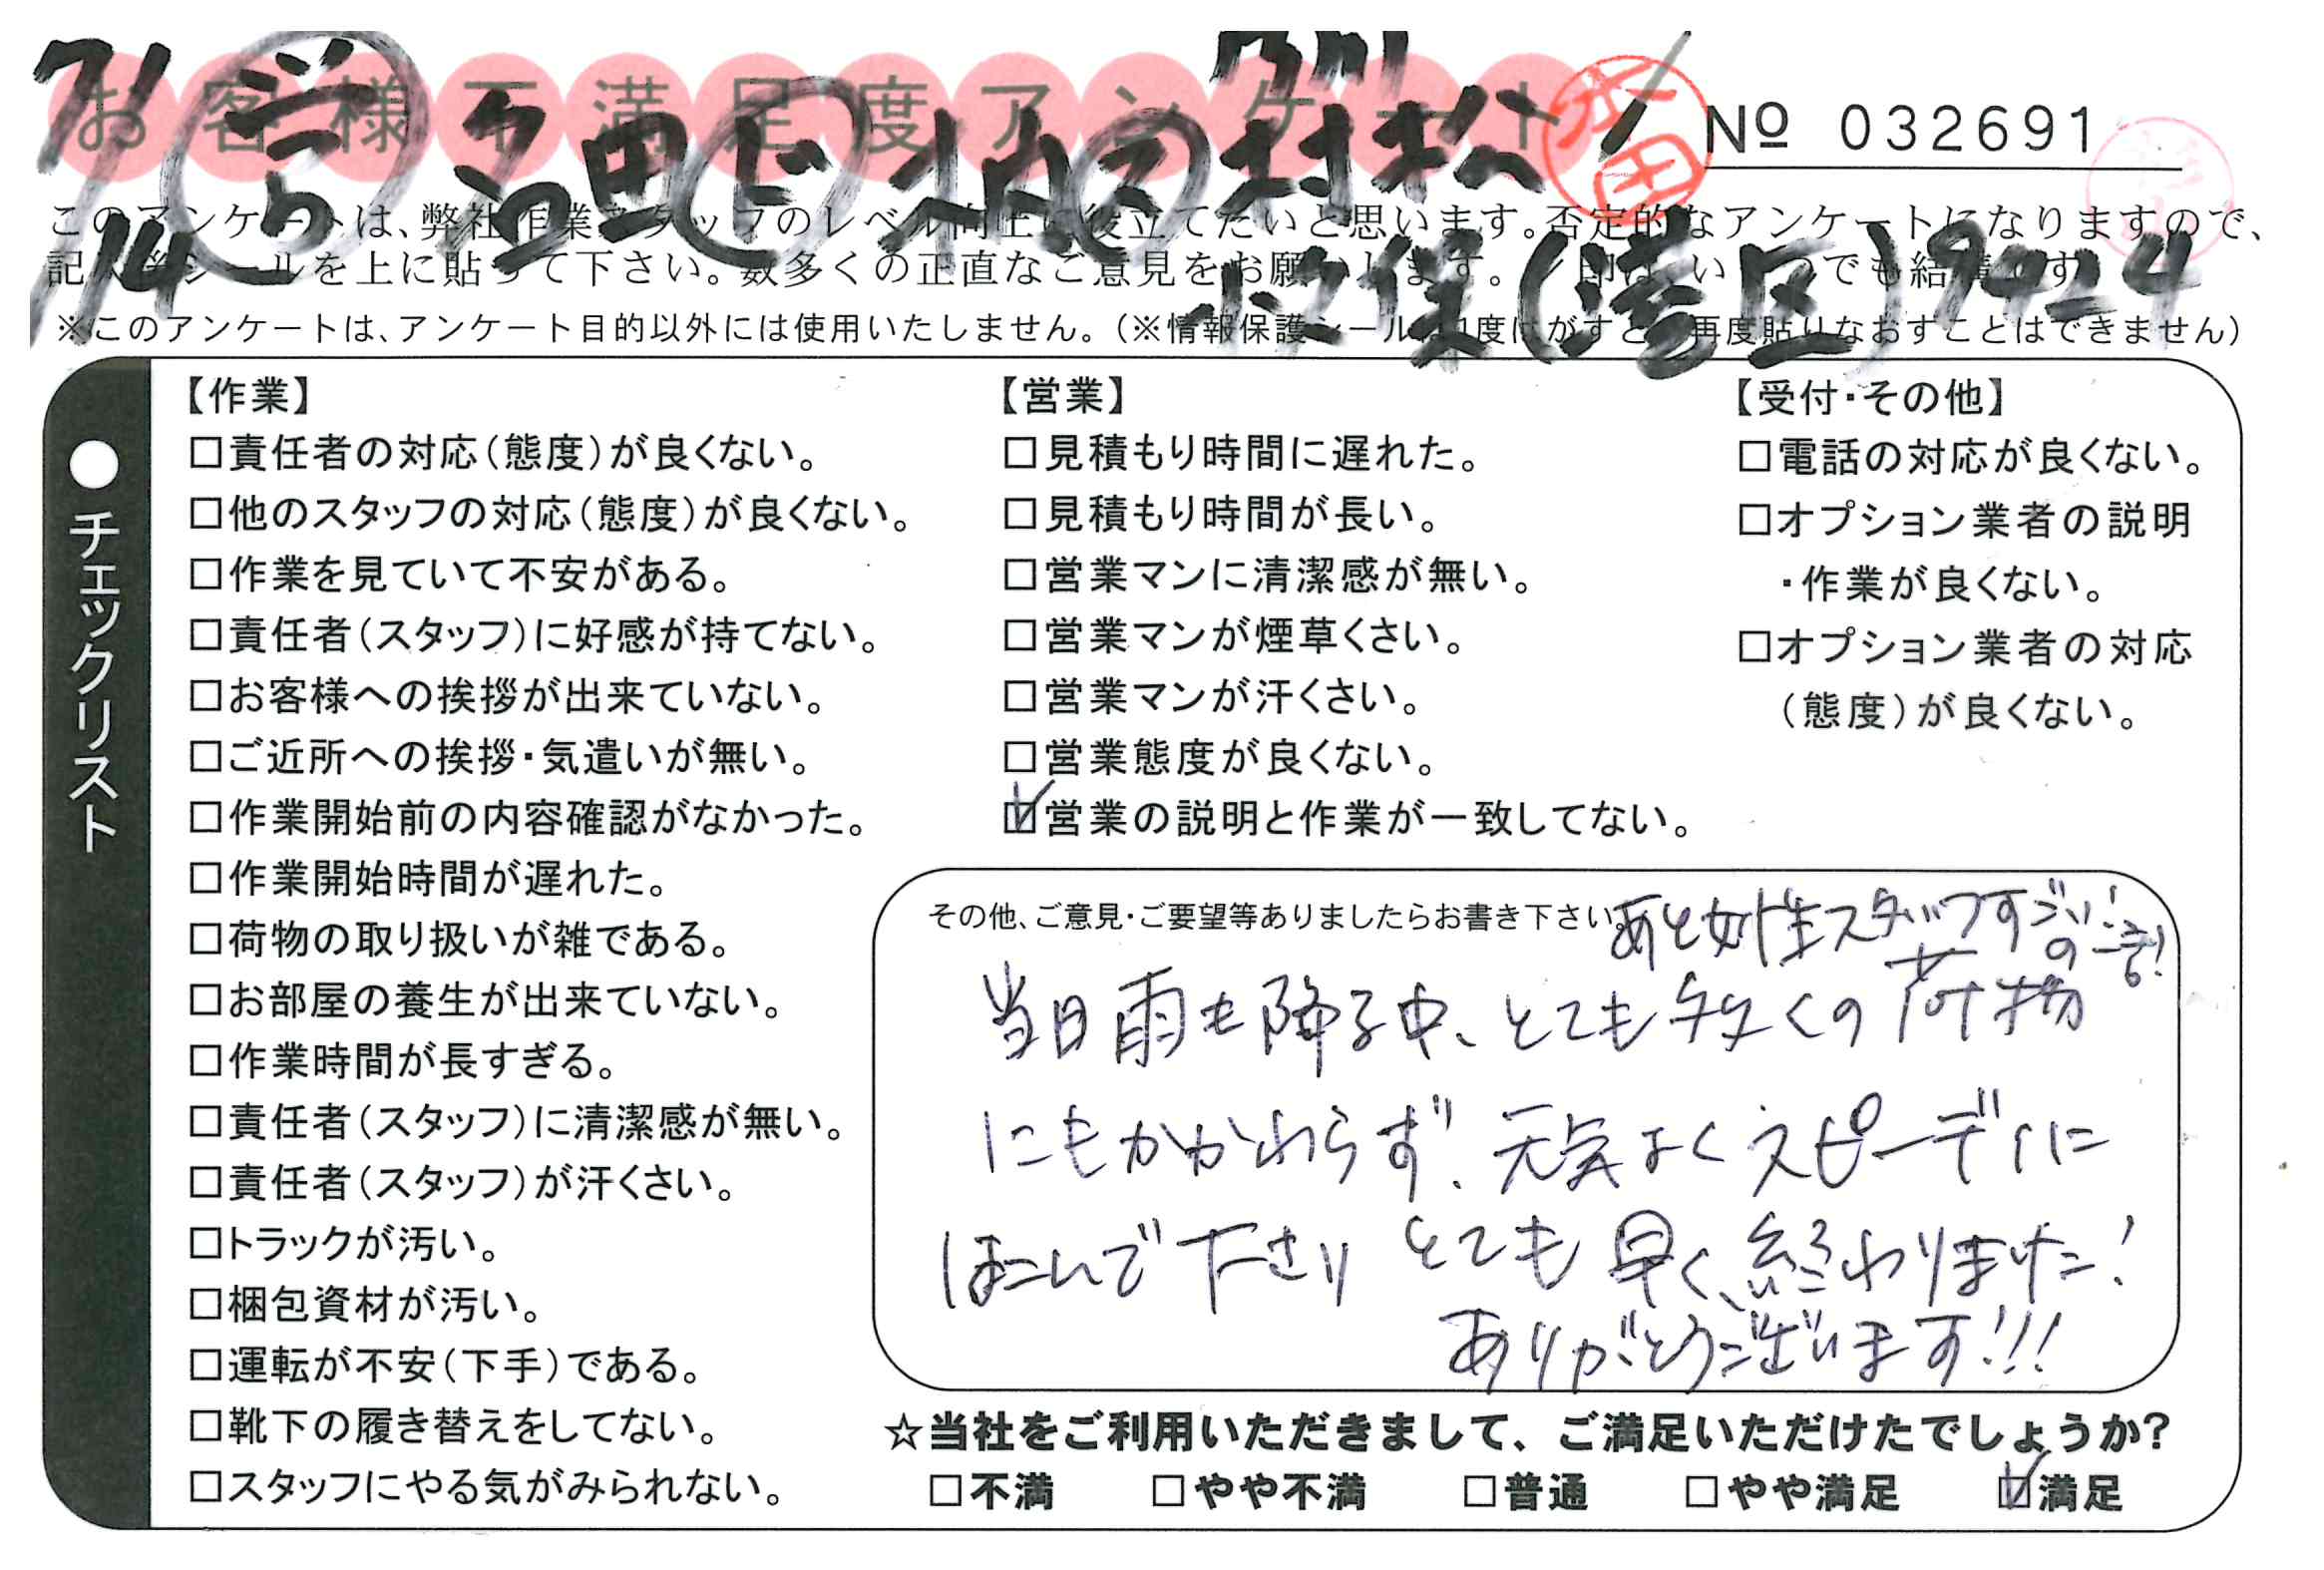 お客様不満足度アンケート
Nº 032691
7/14
営
ド
村松
水田
小久保(港区)
このアンケートは、弊社作業スタッフのレベル向上に役立てたいと思います。否定的なアンケートになりますので、
記入後シールを上に貼って下さい。数多くの正直なご意見をお願いします。
でも結構です
※このアンケートは、アンケート目的以外には使用いたしません。(※情報保護シールは1度はがすと、再度貼りなおすことはできません)
●チェックリスト
【作業】
□責任者の対応(態度)が良くない。
□他のスタッフの対応(態度)が良くない。
□作業を見ていて不安がある。
□責任者(スタッフ)に好感が持てない。
□お客様への挨拶が出来ていない。
□ご近所への挨拶・気遣いが無い。
□作業開始前の内容確認がなかった。
□作業開始時間が遅れた。
□荷物の取り扱いが雑である。
□お部屋の養生が出来ていない。
□作業時間が長すぎる。
□責任者(スタッフ)に清潔感が無い。
□責任者(スタッフ)が汗くさい。
□トラックが汚い。
□梱包資材が汚い。
□運転が不安(下手)である。
□靴下の履き替えをしてない。
□スタッフにやる気がみられない。
【営業】
□見積もり時間に遅れた。
□見積もり時間が長い。
□営業マンに清潔感が無い。
□営業マンが煙草くさい。
□営業マンが汗くさい。
□営業態度が良くない。
☑営業の説明と作業が一致してない。
【受付・その他】
□電話の対応が良くない。
□オプション業者の説明
・作業が良くない。
□オプション業者の対応
(態度)が良くない。
その他、ご意見・ご要望等ありましたらお書き下さい。
あと女性スタッフすごい!
の一言!
当日雨も降る中、とても多くの荷物
にもかかわらず、元気よくスピーディに
はこんで下さり とても早く、終わりました!
ありがとうございます!!!
☆当社をご利用いただきまして、ご満足いただけたでしょうか?
□不満 □やや不満 □普通 □やや満足 ☑満足